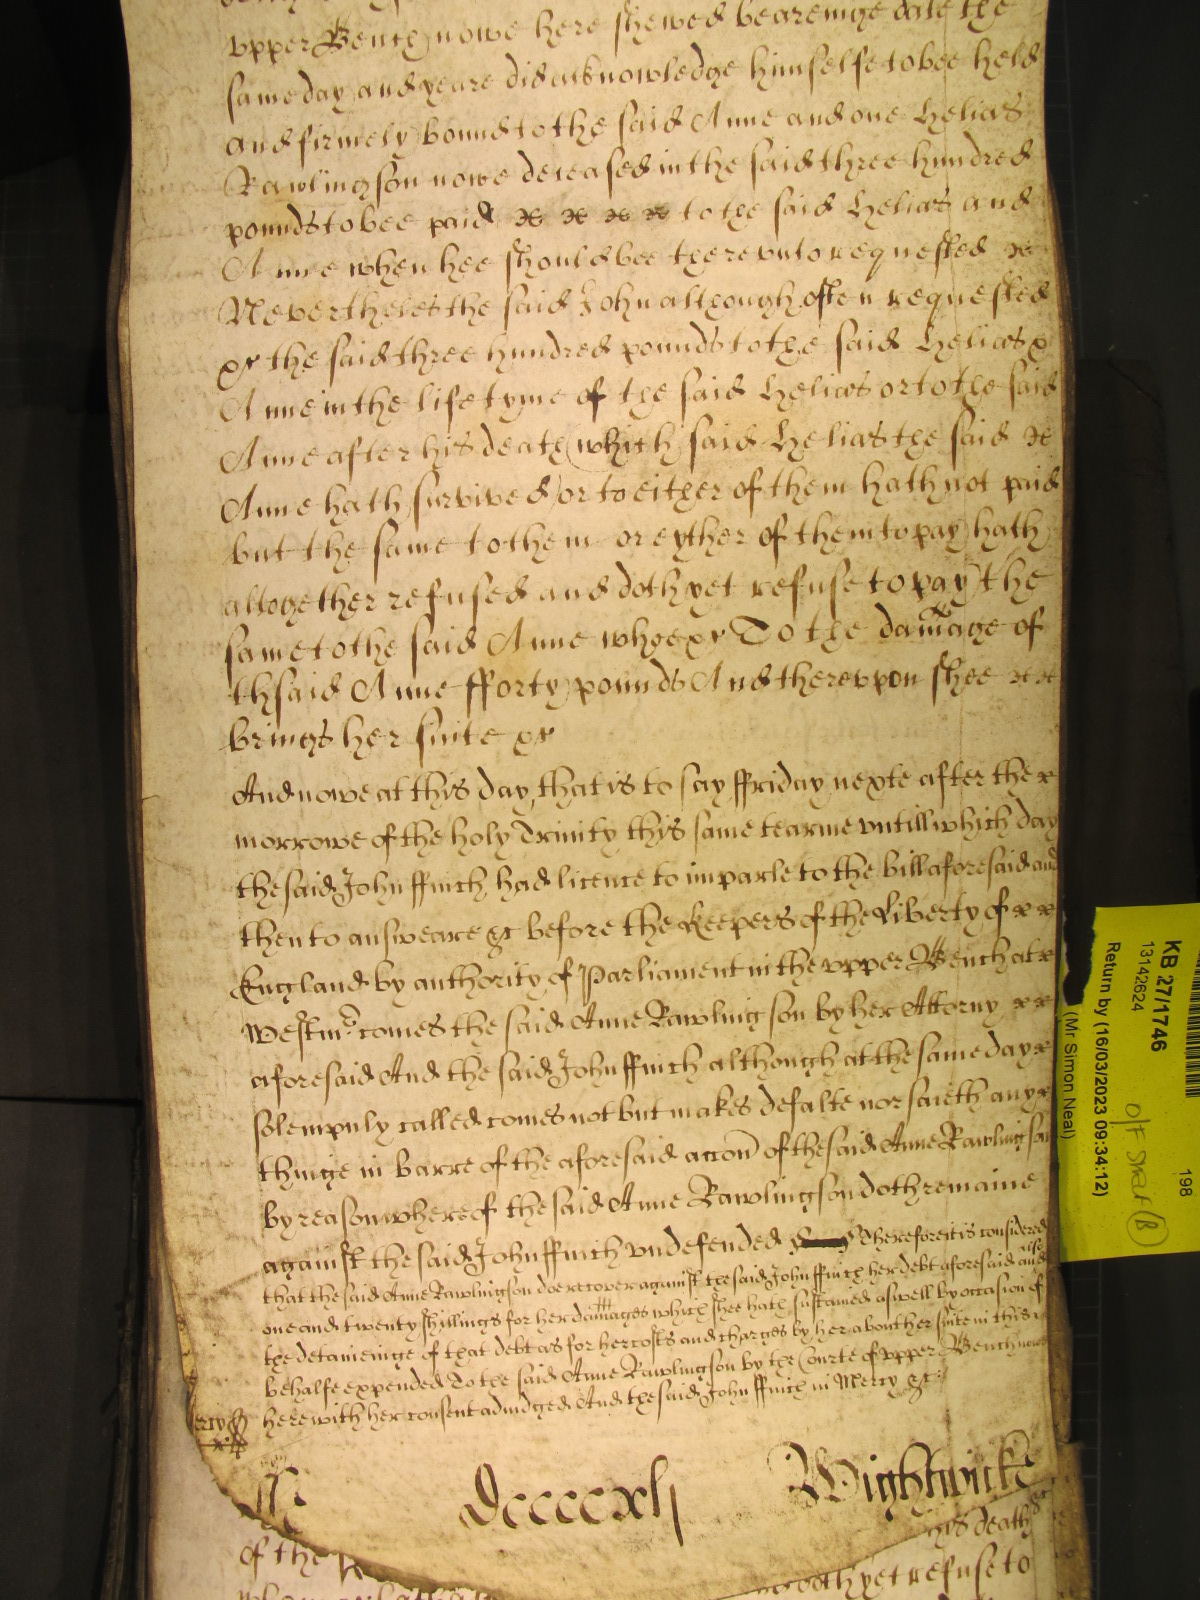 upper Bench nowe here shewed beareinge date the
same day and yeare did acknowledge himselfe to bee held
and firmely bound to the said Anne and one Helias
Rawlingson nowe deceased in the said three hundred
pounds to bee paid x x x x to the said Helias and
Anne when hee should bee thereunto requested x
Nevertheles the said John although often requested
xx the said three hundred pounds to the said Helias x
Anne in the life tyme of the said Helias or to the said
Anne after his death (which said Helias the said x
Anne hath survived) or to either of them hath not paid
but the same to them or eyther of them to pay hath
altogether refused and doth yet refuse to pay the
same to the said Anne wherexx To the damage of
thsaid Anne fforty pounds And thereupon shee x x
brings her suite xx
And nowe at this day, that is to say ffriday nexte after the x
morrowe of the holy Trinity this same tearme untill which day
the said John ffinch had licence to imparle to the bill aforesaid and
then to answeare &c before the Keepers of the Liberty of x x
England by authority of Parliament in the upper Bench at x
Westmr comes the said Anne Rawlingson by her Attorny x x
aforesaid And the said John ffinch although at the same day x
solempnly called comes not but makes defalte nor saieth any x
thinge in barre of the aforesaid accon of the said Anne Rawlingson
by reason whereof the said Anne Rawlingson doth remaine
against the said John ffinch undefended Therefore it is considered
that the said Anne Rawlingson doe recover against the said John ffinch her debt aforesaid and
one and twenty shillings for her damages which shee hath sustained aswell by occasion of
the detaieninge of that debt as for her costs and charges by her about her suite in this
behalfe expended To the said Anne Rawlingson by the Courte of upper Bench nowe
here with her consent adiudged And the said John ffinch in Mercy &c
ercy
Dccccxli Wightwicke
his death
of the
doth yet refuse to
KB 27/1746
13142624
Return by (16/03/2023 09:34:12)
(Mr Simon Neal)
198